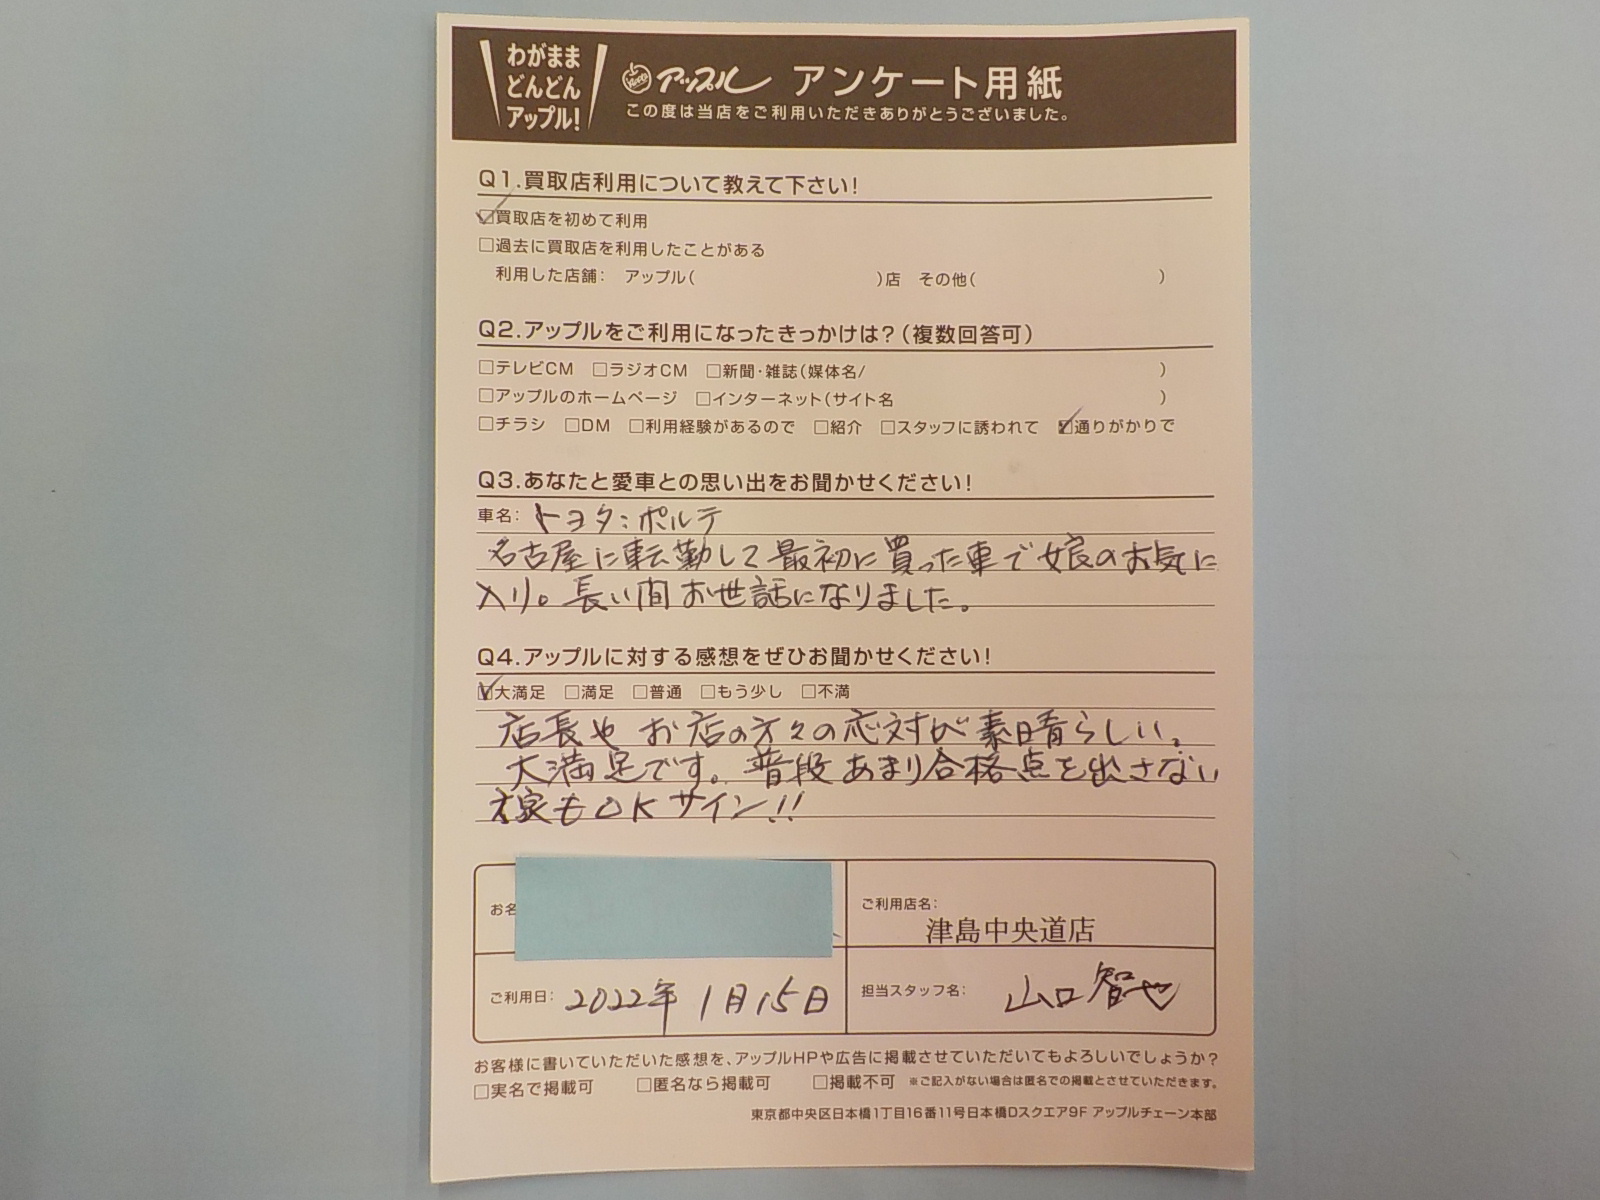 わがまま
どんどん
アップル!
アップル アンケート用紙
この度は当店をご利用いただきありがとうございました。
Q1.買取店利用について教えて下さい!
☑買取店を初めて利用
□過去に買取店を利用したことがある
利用した店舗: アップル( )店 その他( )
Q2.アップルをご利用になったきっかけは?(複数回答可)
□テレビCM □ラジオCM □新聞・雑誌(媒体名/ )
□アップルのホームページ □インターネット(サイト名 )
□チラシ □DM □利用経験があるので □紹介 □スタッフに誘われて ☑通りがかりで
Q3.あなたと愛車との思い出をお聞かせください!
車名: トヨタ:ポルテ
名古屋に転勤して最初に買った車で娘のお気に
入り。長い間お世話になりました。
Q4.アップルに対する感想をぜひお聞かせください!
☑大満足 □満足 □普通 □もう少し □不満
店長や お店の方々の応対が素晴らしい。
大満足です。普段あまり合格点を出さない
嫁もOKサイン!!
お名
ご利用店名:
津島中央道店
ご利用日: 2022年 1月15日
担当スタッフ名: 山口智也
お客様に書いていただいた感想を、アップルHPや広告に掲載させていただいてもよろしいでしょうか?
□実名で掲載可 □匿名なら掲載可 □掲載不可 ※ご記入がない場合は匿名での掲載とさせていただきます。
東京都中央区日本橋1丁目16番11号日本橋Dスクエア9F アップルチェーン本部